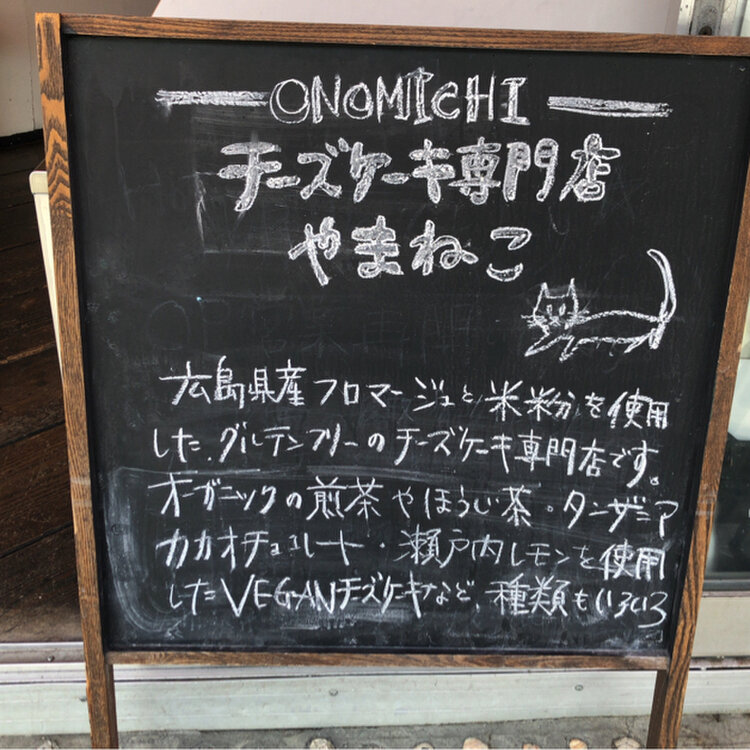 ONOMICHI
チーズケーキ専門店
やまねこ
広島県産フロマージュと米粉を使用
した、グルテンフリーのチーズケーキ専門店です。
オーガニックの煎茶やほうじ茶・タンザニア
カカオチョコレート・瀬戸内レモンを使用
したVEGANチーズケーキなど、種類もいろいろ